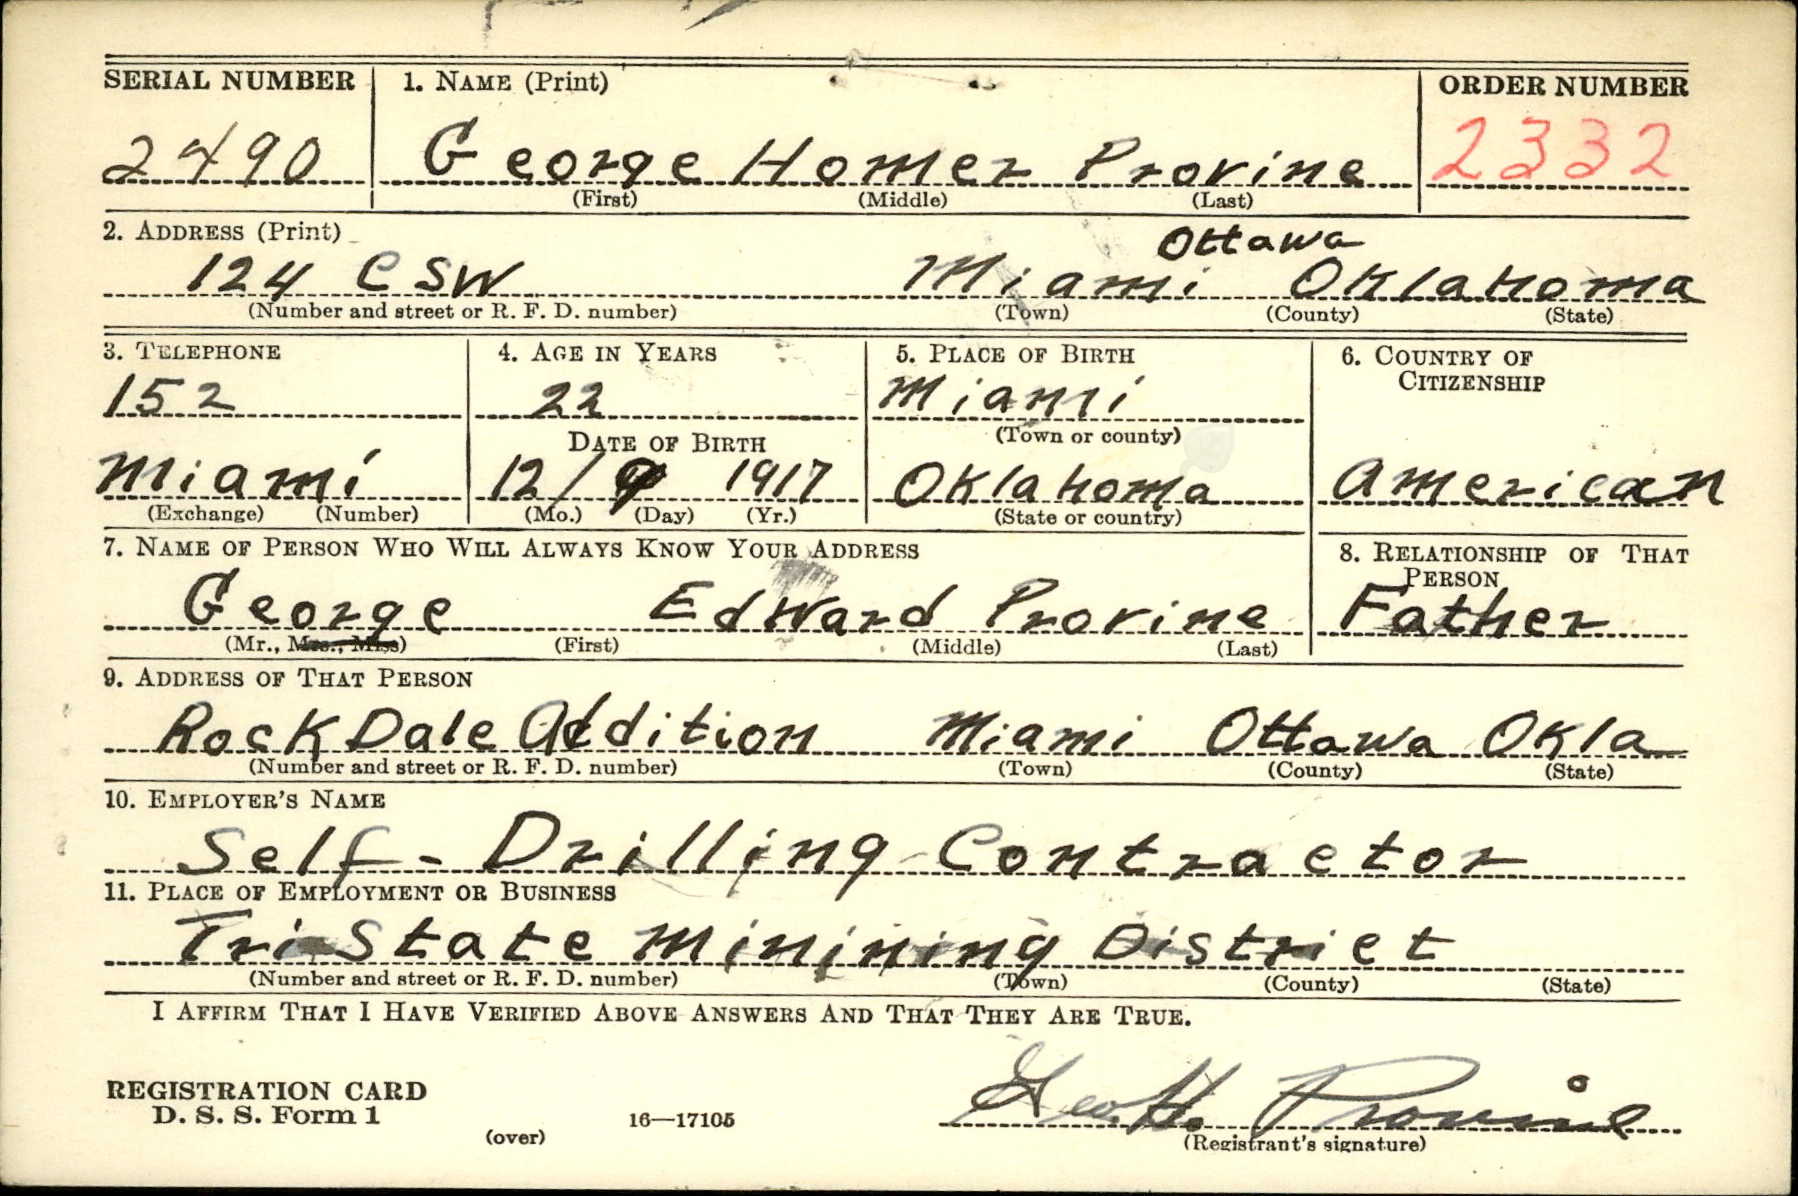 SERIAL NUMBER 1. NAME (Print) ORDER NUMBER
2490 George Homer Provine 2332
(First) (Middle) (Last)
2. ADDRESS (Print)
Ottawa
124 C SW Miami Oklahoma
(Number and street or R. F. D. number) (Town) (County) (State)
3. TELEPHONE 4. AGE IN YEARS 5. PLACE OF BIRTH 6. COUNTRY OF
CITIZENSHIP
152 22 Miami
DATE OF BIRTH (Town or county)
Miami 12/9 1917 Oklahoma American
(Exchange) (Number) (Mo.) (Day) (Yr.) (State or country)
7. NAME OF PERSON WHO WILL ALWAYS KNOW YOUR ADDRESS 8. RELATIONSHIP OF THAT
PERSON
George Edward Provine Father
(Mr., Mrs., Miss) (First) (Middle) (Last)
9. ADDRESS OF THAT PERSON
Rock Dale Addition Miami Ottawa Okla
(Number and street or R. F. D. number) (Town) (County) (State)
10. EMPLOYER'S NAME
Self - Drilling Contractor
11. PLACE OF EMPLOYMENT OR BUSINESS
Tri-State Minining District
(Number and street or R. F. D. number) (Town) (County) (State)
I AFFIRM THAT I HAVE VERIFIED ABOVE ANSWERS AND THAT THEY ARE TRUE.
Geo. H. Provine
REGISTRATION CARD
D. S. S. Form 1 16—17105
(over) (Registrant's signature)